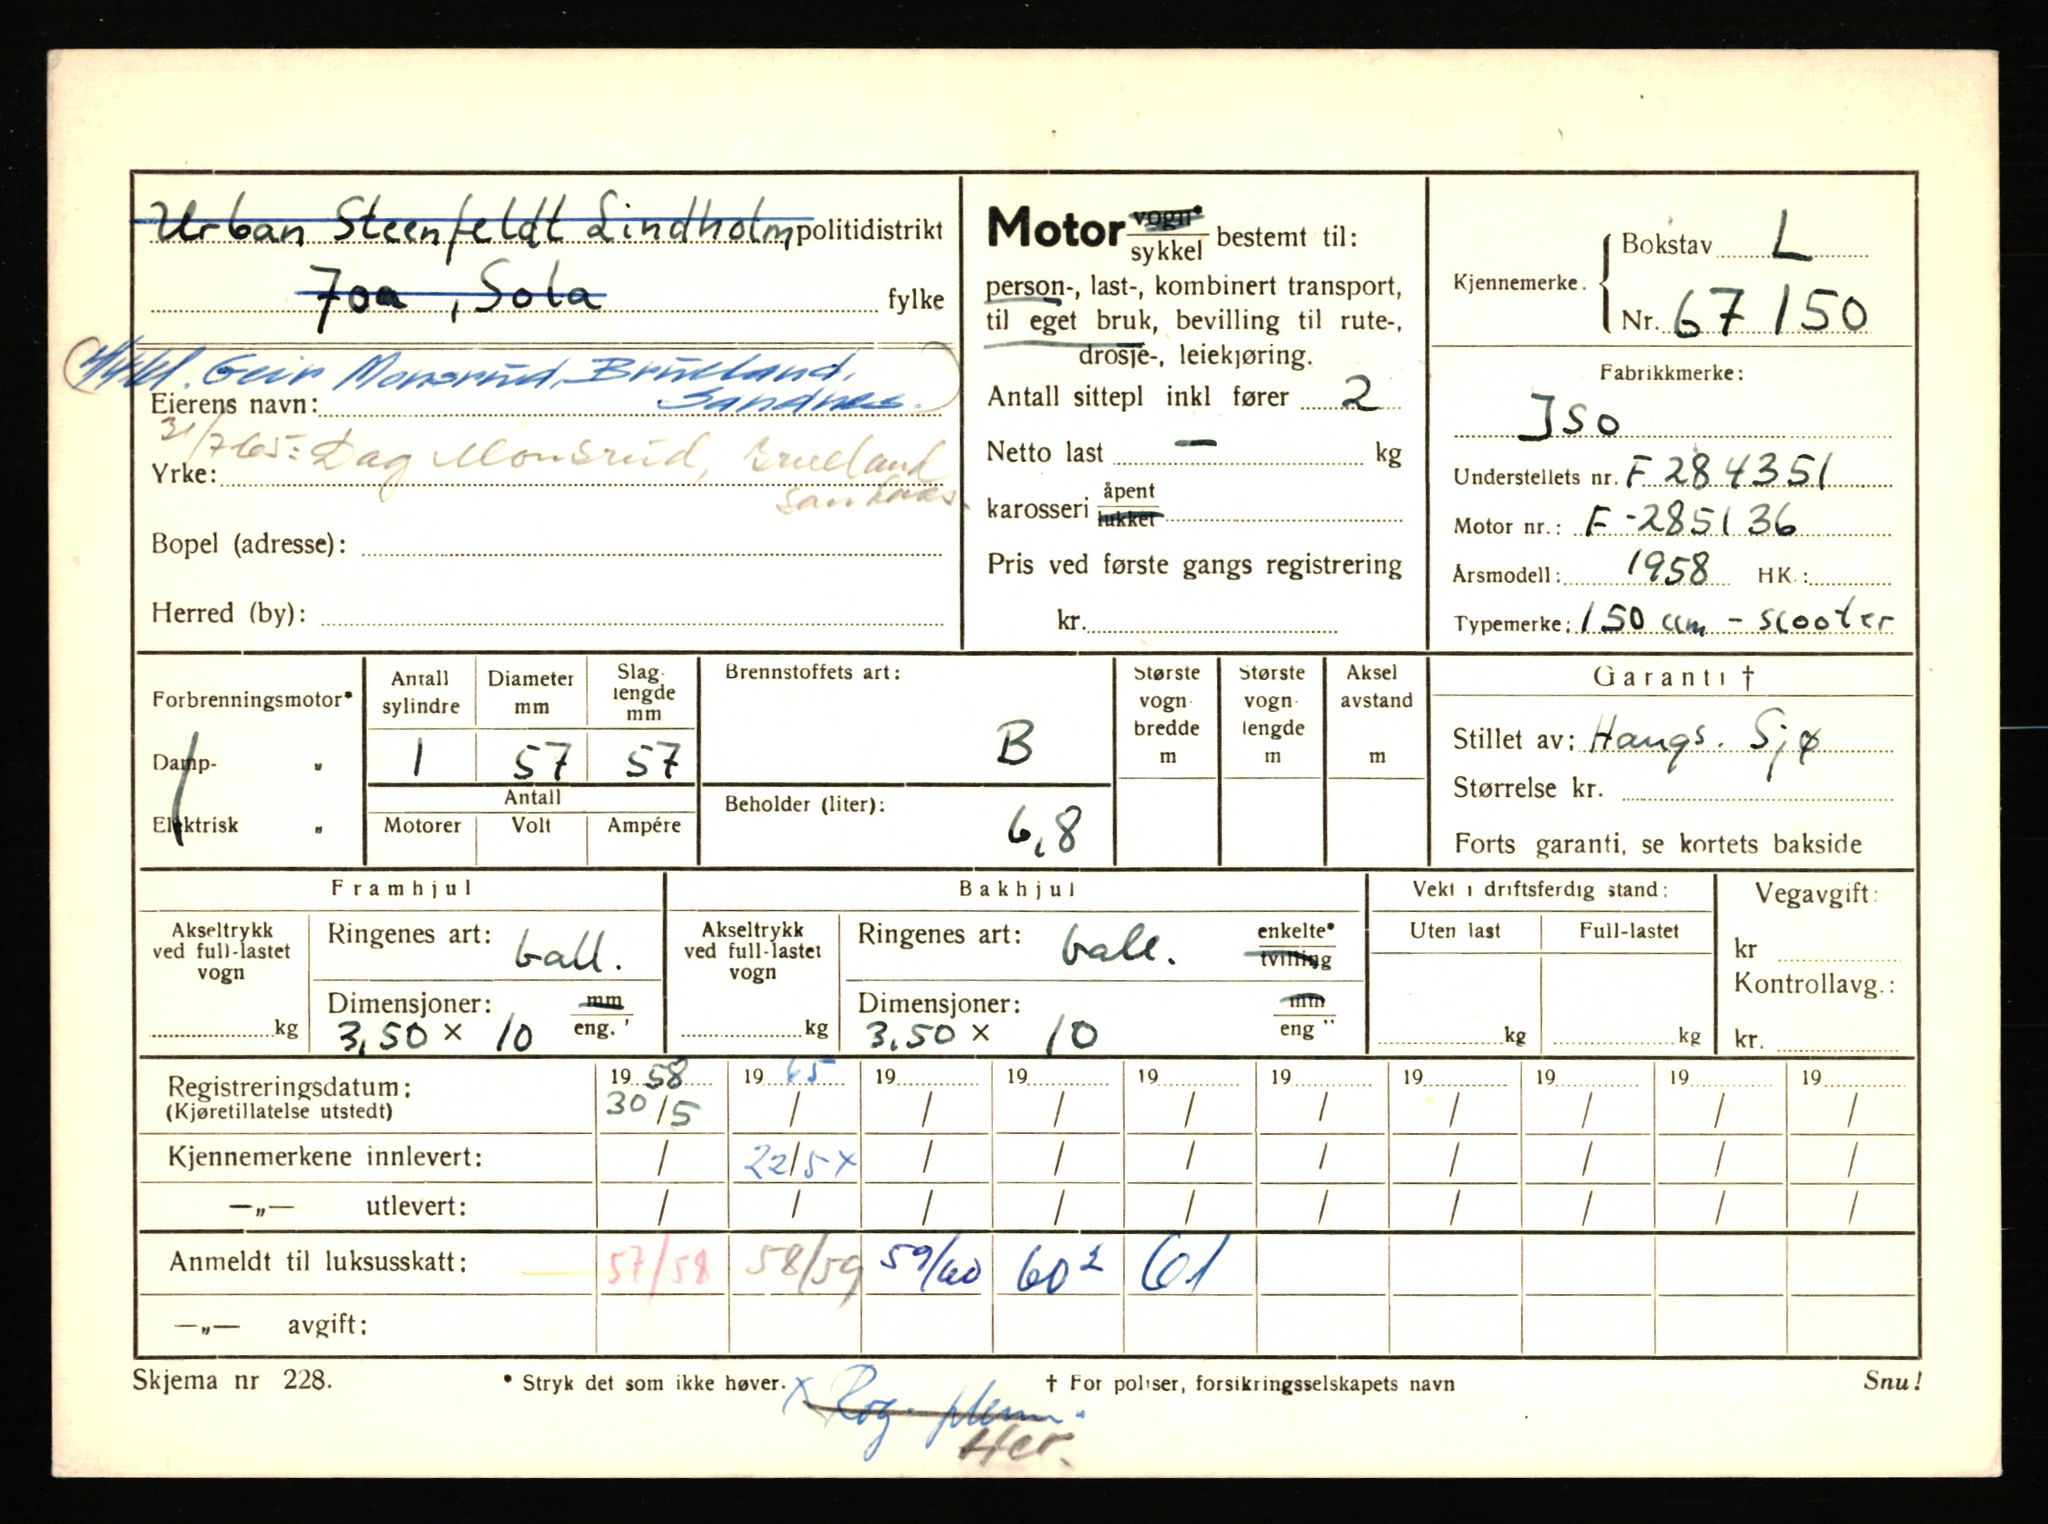 Urban Steenfeldt Lindholm politidistrikt
Joa, Sola fylke
Geir Monsrud, Brueland,
Sandnes.
Eierens navn:
31/7 65: Dag Monsrud, Brueland
Sandnes.
Yrke:
Bopel (adresse):
Herred (by):
Motor vogn*
sykkel bestemt til:
person-, last-, kombinert transport,
til eget bruk, bevilling til rute-,
drosje-, leiekjøring.
Antall sittepl inkl fører 2
Netto last — kg
karosseri åpent
lukket
Pris ved første gangs registrering
kr.
Kjennemerke. Bokstav L
Nr. 67150
Fabrikkmerke:
Iso
Understellets nr. F 284351
Motor nr.: F-285136
Årsmodell: 1958 HK.:
Typemerke: 150 ccm - scooter
Forbrenningsmotor*
Damp- „
Elektrisk „
Antall sylindre
Diameter mm
Slag-lengde mm
1 57 57
Antall
Motorer Volt Ampére
Brennstoffets art:
B
Beholder (liter):
6,8
Største vogn-bredde m
Største vogn-lengde m
Aksel avstand m
Garanti †
Stillet av: Haugs. Sjø
Størrelse kr.
Forts garanti, se kortets bakside
Framhjul
Akseltrykk
ved full-lastet
vogn
kg
Ringenes art: ball.
Dimensjoner: mm
3,50 × 10 eng. '
Bakhjul
Akseltrykk
ved full-lastet
vogn
kg
Ringenes art: ball. enkelte*
tvilling
Dimensjoner: mm
3.50 × 10 eng "
Vekt i driftsferdig stand:
Uten last Full-lastet
kg kg
Vegavgift:
kr
Kontrollavg.:
kr.
Registreringsdatum: 19 58 19 65 19 19 19 19 19 19 19 19
(Kjøretillatelse utstedt) 30/5 / / / / / / / / /
Kjennemerkene innlevert: / 22/5 x / / / / / / / /
—„— utlevert: / / / / / / / / / /
Anmeldt til luksusskatt: 57/58 58/59 59/60 60² 61
—„— avgift:
Skjema nr 228. * Stryk det som ikke høver. † For poliser, forsikringsselskapets navn Snu!
x
Her.